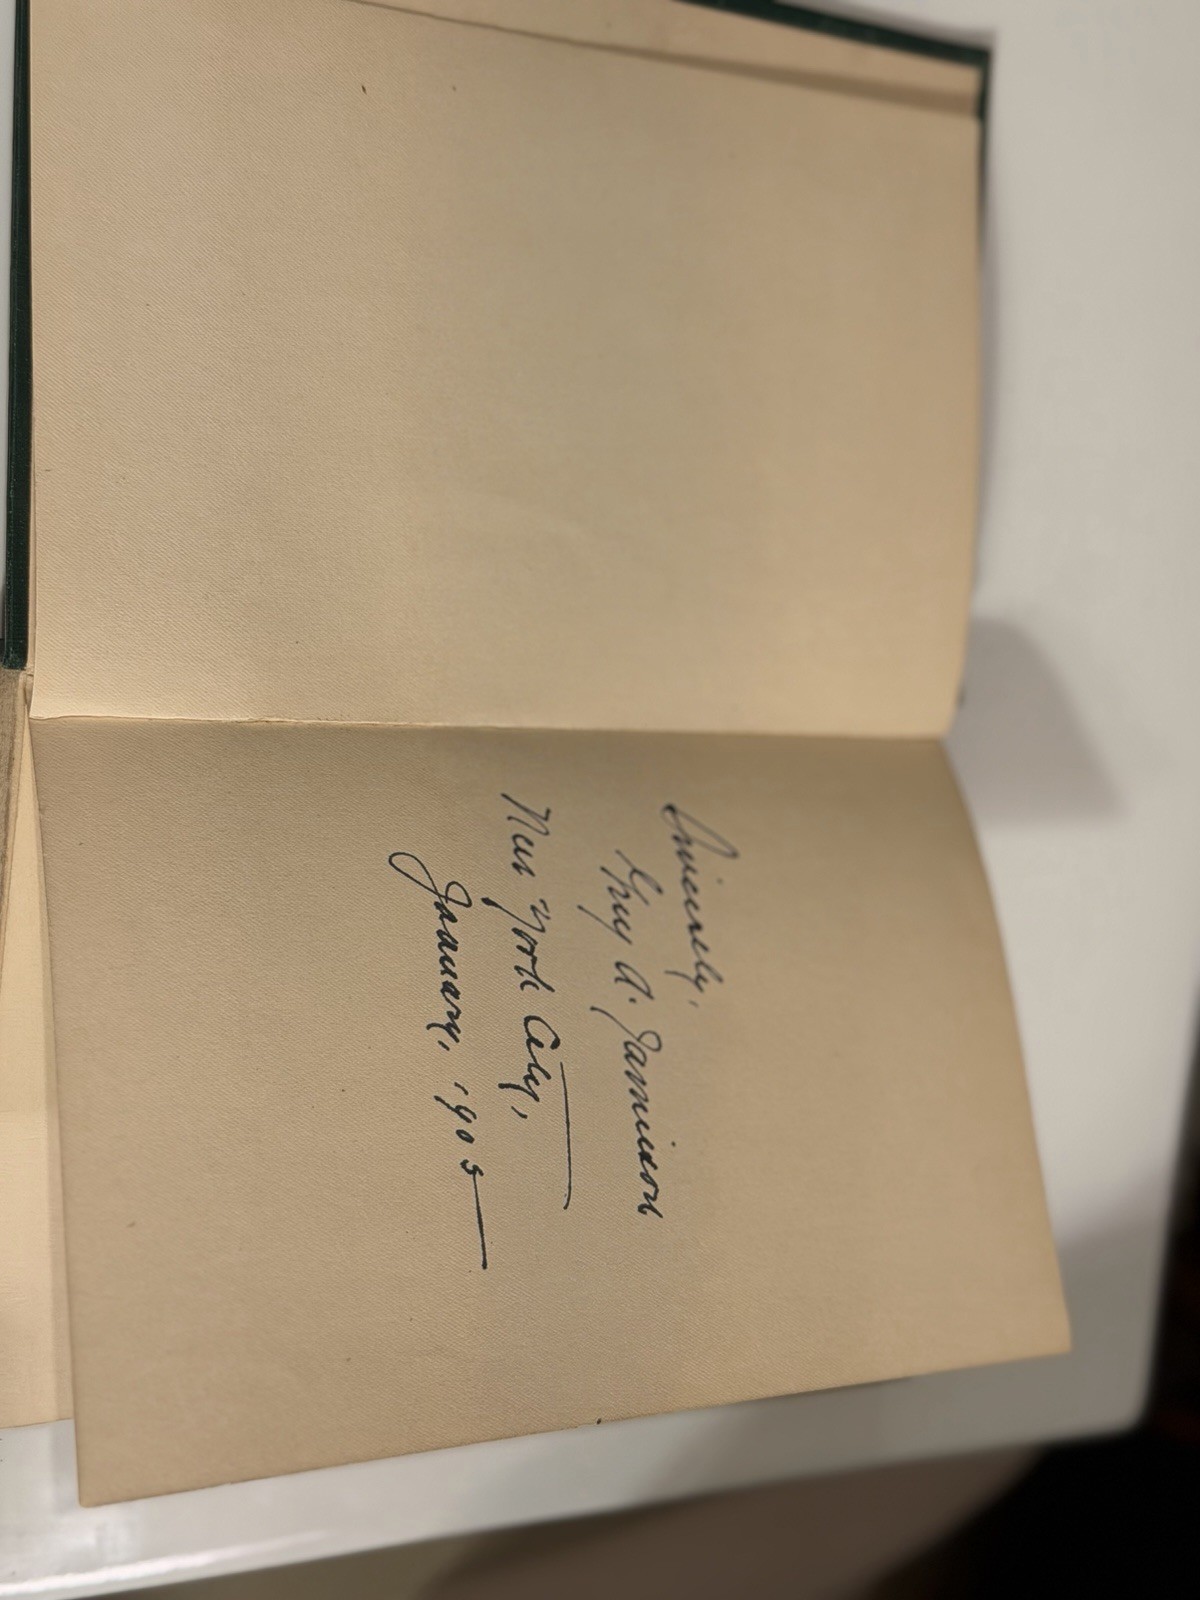 Sincerely,
Guy A. Jamieson
New York City,
January, 1905